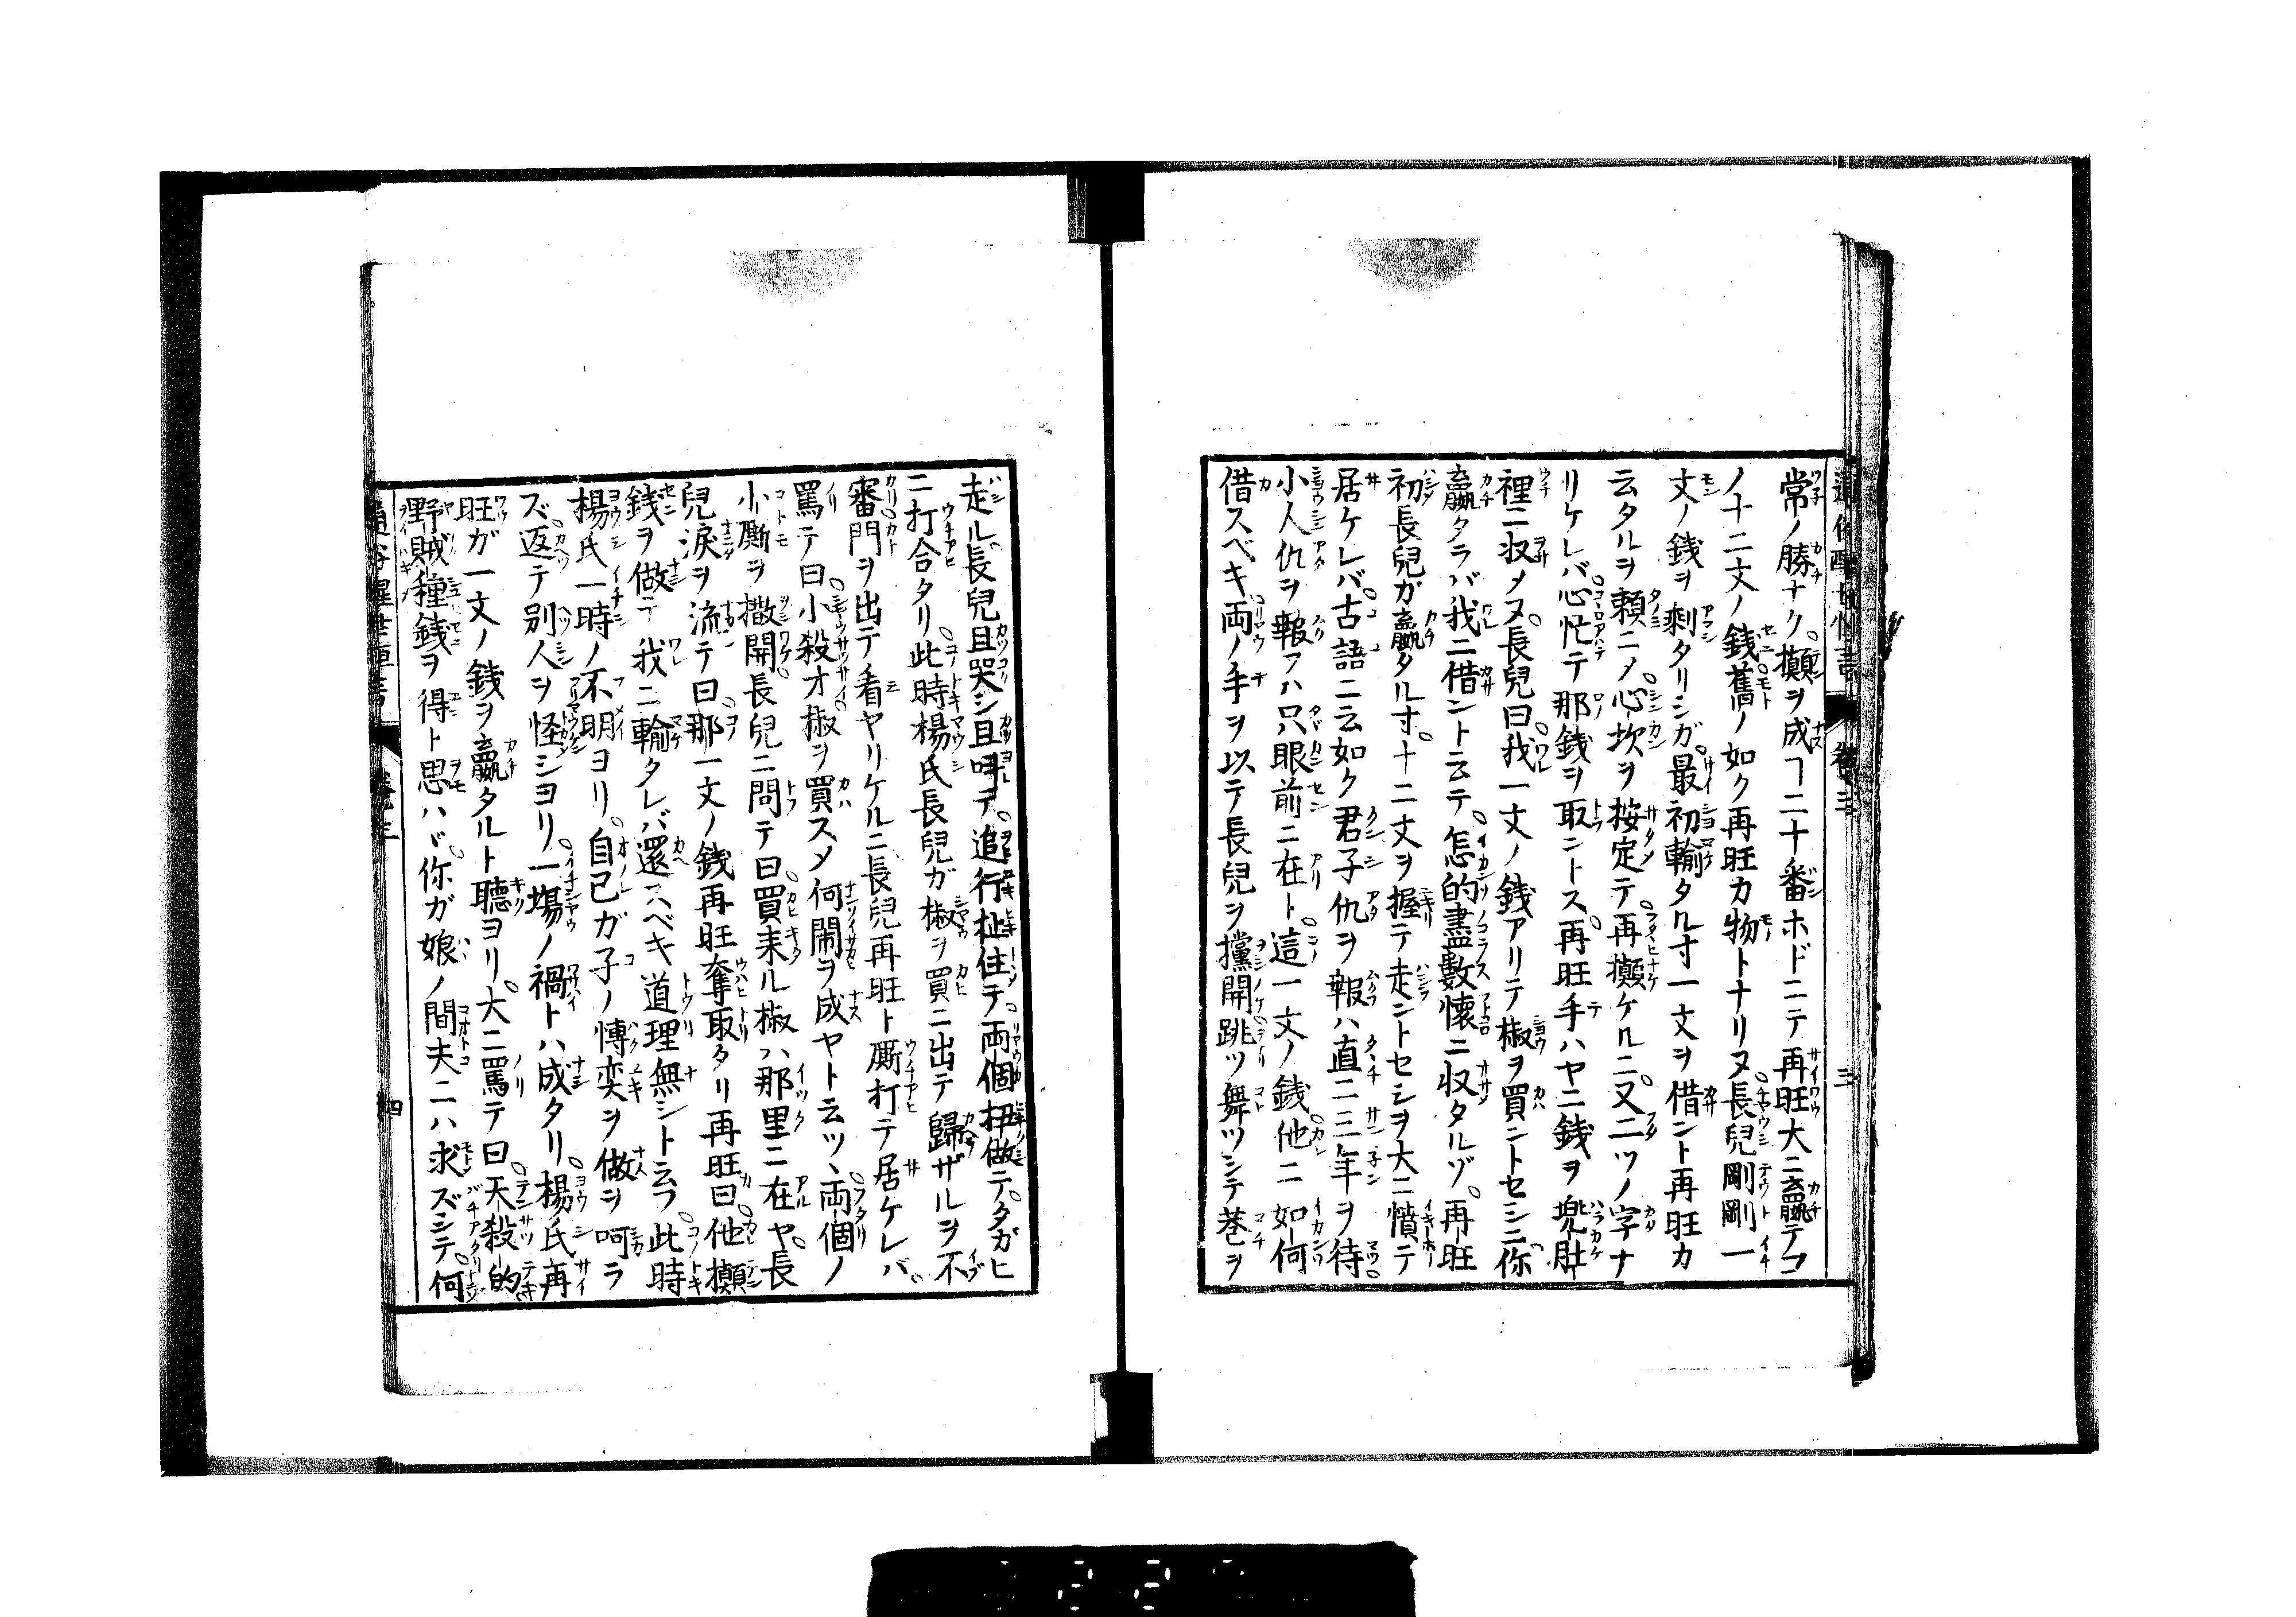 常ノ勝ナク攧ヲ成ヿ二十番ホドニテ再旺大ニ贏テコ
ノ十二文ノ錢舊ノ如ク再旺カ物トナリヌ長兒剛剛一
文ノ錢ヲ剰タリシガ最初輸タル寸一文ヲ借ント再旺カ
云タルヲ頼ニメ心坎ヲ按定テ再攧ケルニ又二ツノ字ナ
リケレバ心忙テ那錢ヲ取ントス再旺手ハヤニ錢ヲ兜肚
裡ニ収メヌ長兒曰我一文ノ錢アリテ椒ヲ買ントセシニ你
贏タラバ我ニ借ント云テ怎的盡數懷ニ収タルゾ再旺
初長兒ガ贏タル寸十二文ヲ握テ走ントセシヲ大ニ憤テ
居ケレバ古語ニ云如ク君子仇ヲ報ハ直ニ三年ヲ待
小人仇ヲ報フハ只眼前ニ在ト這一文ノ錢他ニ如何
借スベキ両ノ手ヲ以テ長兒ヲ攩開跳ツ舞ツシテ巷ヲ
走ル長兒且哭シ且呼テ追行扯住テ両個扭做テタガヒ
ニ打合タリ此時楊氏長兒ガ椒ヲ買ニ出テ歸ザルヲ不
審門ヲ出テ看ヤリケルニ長兒再旺ト厮打テ居ケレバ
罵テ曰小殺才椒ヲ買スメ何閙ヲ成ヤト云ツヽ両個ノ
小厮ヲ撒開長兒ニ問テ曰買来ル椒ハ那里ニ在ヤ長
兒淚ヲ流テ曰那一文ノ錢再旺奪取タリ再旺曰他攧
錢ヲ做テ我ニ輸タレバ還スベキ道理無シト云フ此時
楊氏一時ノ不明ヨリ自己ガ子ノ慱奕ヲ做ヲ呵ラ
ズ返テ別人ヲ怪シヨリ一塲ノ禍トハ成タリ楊氏再
旺ガ一文ノ錢ヲ贏タルト聽ヨリ大ニ罵テ曰天殺的
野賊種錢ヲ得ト思ハヾ你ガ娘ノ間夫ニハ求ズシテ何
卷三
三
四